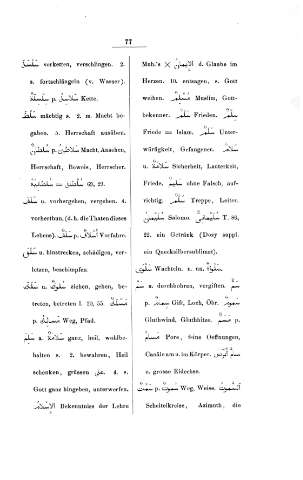 77
سلسل verketten, verschlingen. 2.
s. fortschlängeln (v. Wasser).
سلسلة p. سلاسل Kette.
سلط mächtig s. 2. m Macht be-
gaben. 5. Herrschaft ausüben.
سلطان p. سلاطين Macht, Ansehen,
Herrschaft, Beweis, Herrscher.
69, 29.
سلف u. vorhergehen, vergehen. 4.
vorherthun (d. h. die Thaten dieses
Lebens). سلف p. أسلاف Vorfahre.
سلق u. hinstrecken, schädigen, ver-
letzen, beschimpfen.
سلك u. سلوك ziehen, gehen, be-
treten, betreten l. 10, 55. مسلك
p. مسالك Weg, Pfad.
سلم a. سلامة ganz, heil, wohlbe-
halten s. 2. bewahren, Heil
schenken, grüssen على. 4. s.
Gott ganz hingeben, unterworfen.
الإسلام Bekenntniss der Lehre
Muh.'s × الإيمان d. Glaube im
Herzen. 10. entsagen, s. Gott
weihen. مسلم Muslim, Gott-
bekenner. سلم Frieden. سلم
Friede = Islam. سلم Unter-
würfigkeit, Gefangener. سلام
u. سلامة Sicherheit, Lauterkeit,
Friede. سليم ohne Falsch, auf-
richtig. سلم Treppe, Leiter.
سليمان Salomo. T. 86,
22. ein Getränk (Dozy suppl.
ein Quecksilbersublimat).
سلوى Wachteln. n. un. سلواة
سم u. durchbohren, vergiften. سم
p. سموم Gift, Loch, Öhr. سموم
Gluthwind, Gluthhitze. مسم p.
مسام Pore, feine Öffnungen,
Canäle am u. im Körper. سام أبرص
e. grosse Eidechse.
سمت p. سموت Weg, Weise. السموت
Scheitelkreise, Azimuth, die